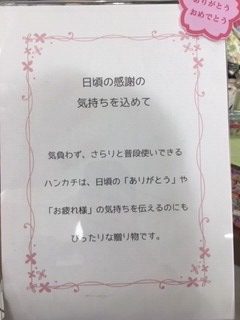 ありがとう
おめでとう
日頃の感謝の
気持ちを込めて
気負わず、さらりと普段使いできる
ハンカチは、日頃の「ありがとう」や
「お疲れ様」の気持ちを伝えるのにも
ぴったりな贈り物です。